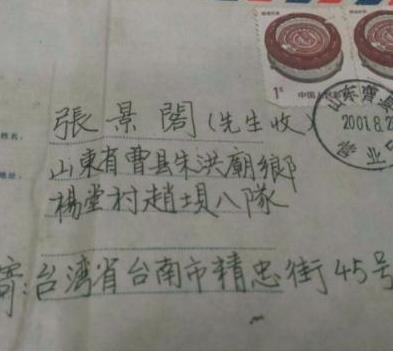 1元
中国人民邮政
山东曹县
2001.8.2
营业
姓名:
張景閣(先生收)
地址:
山東省曹县朱洪廟鄉
楊堂村趙垻八隊
寄:台湾省台南市精忠街45号